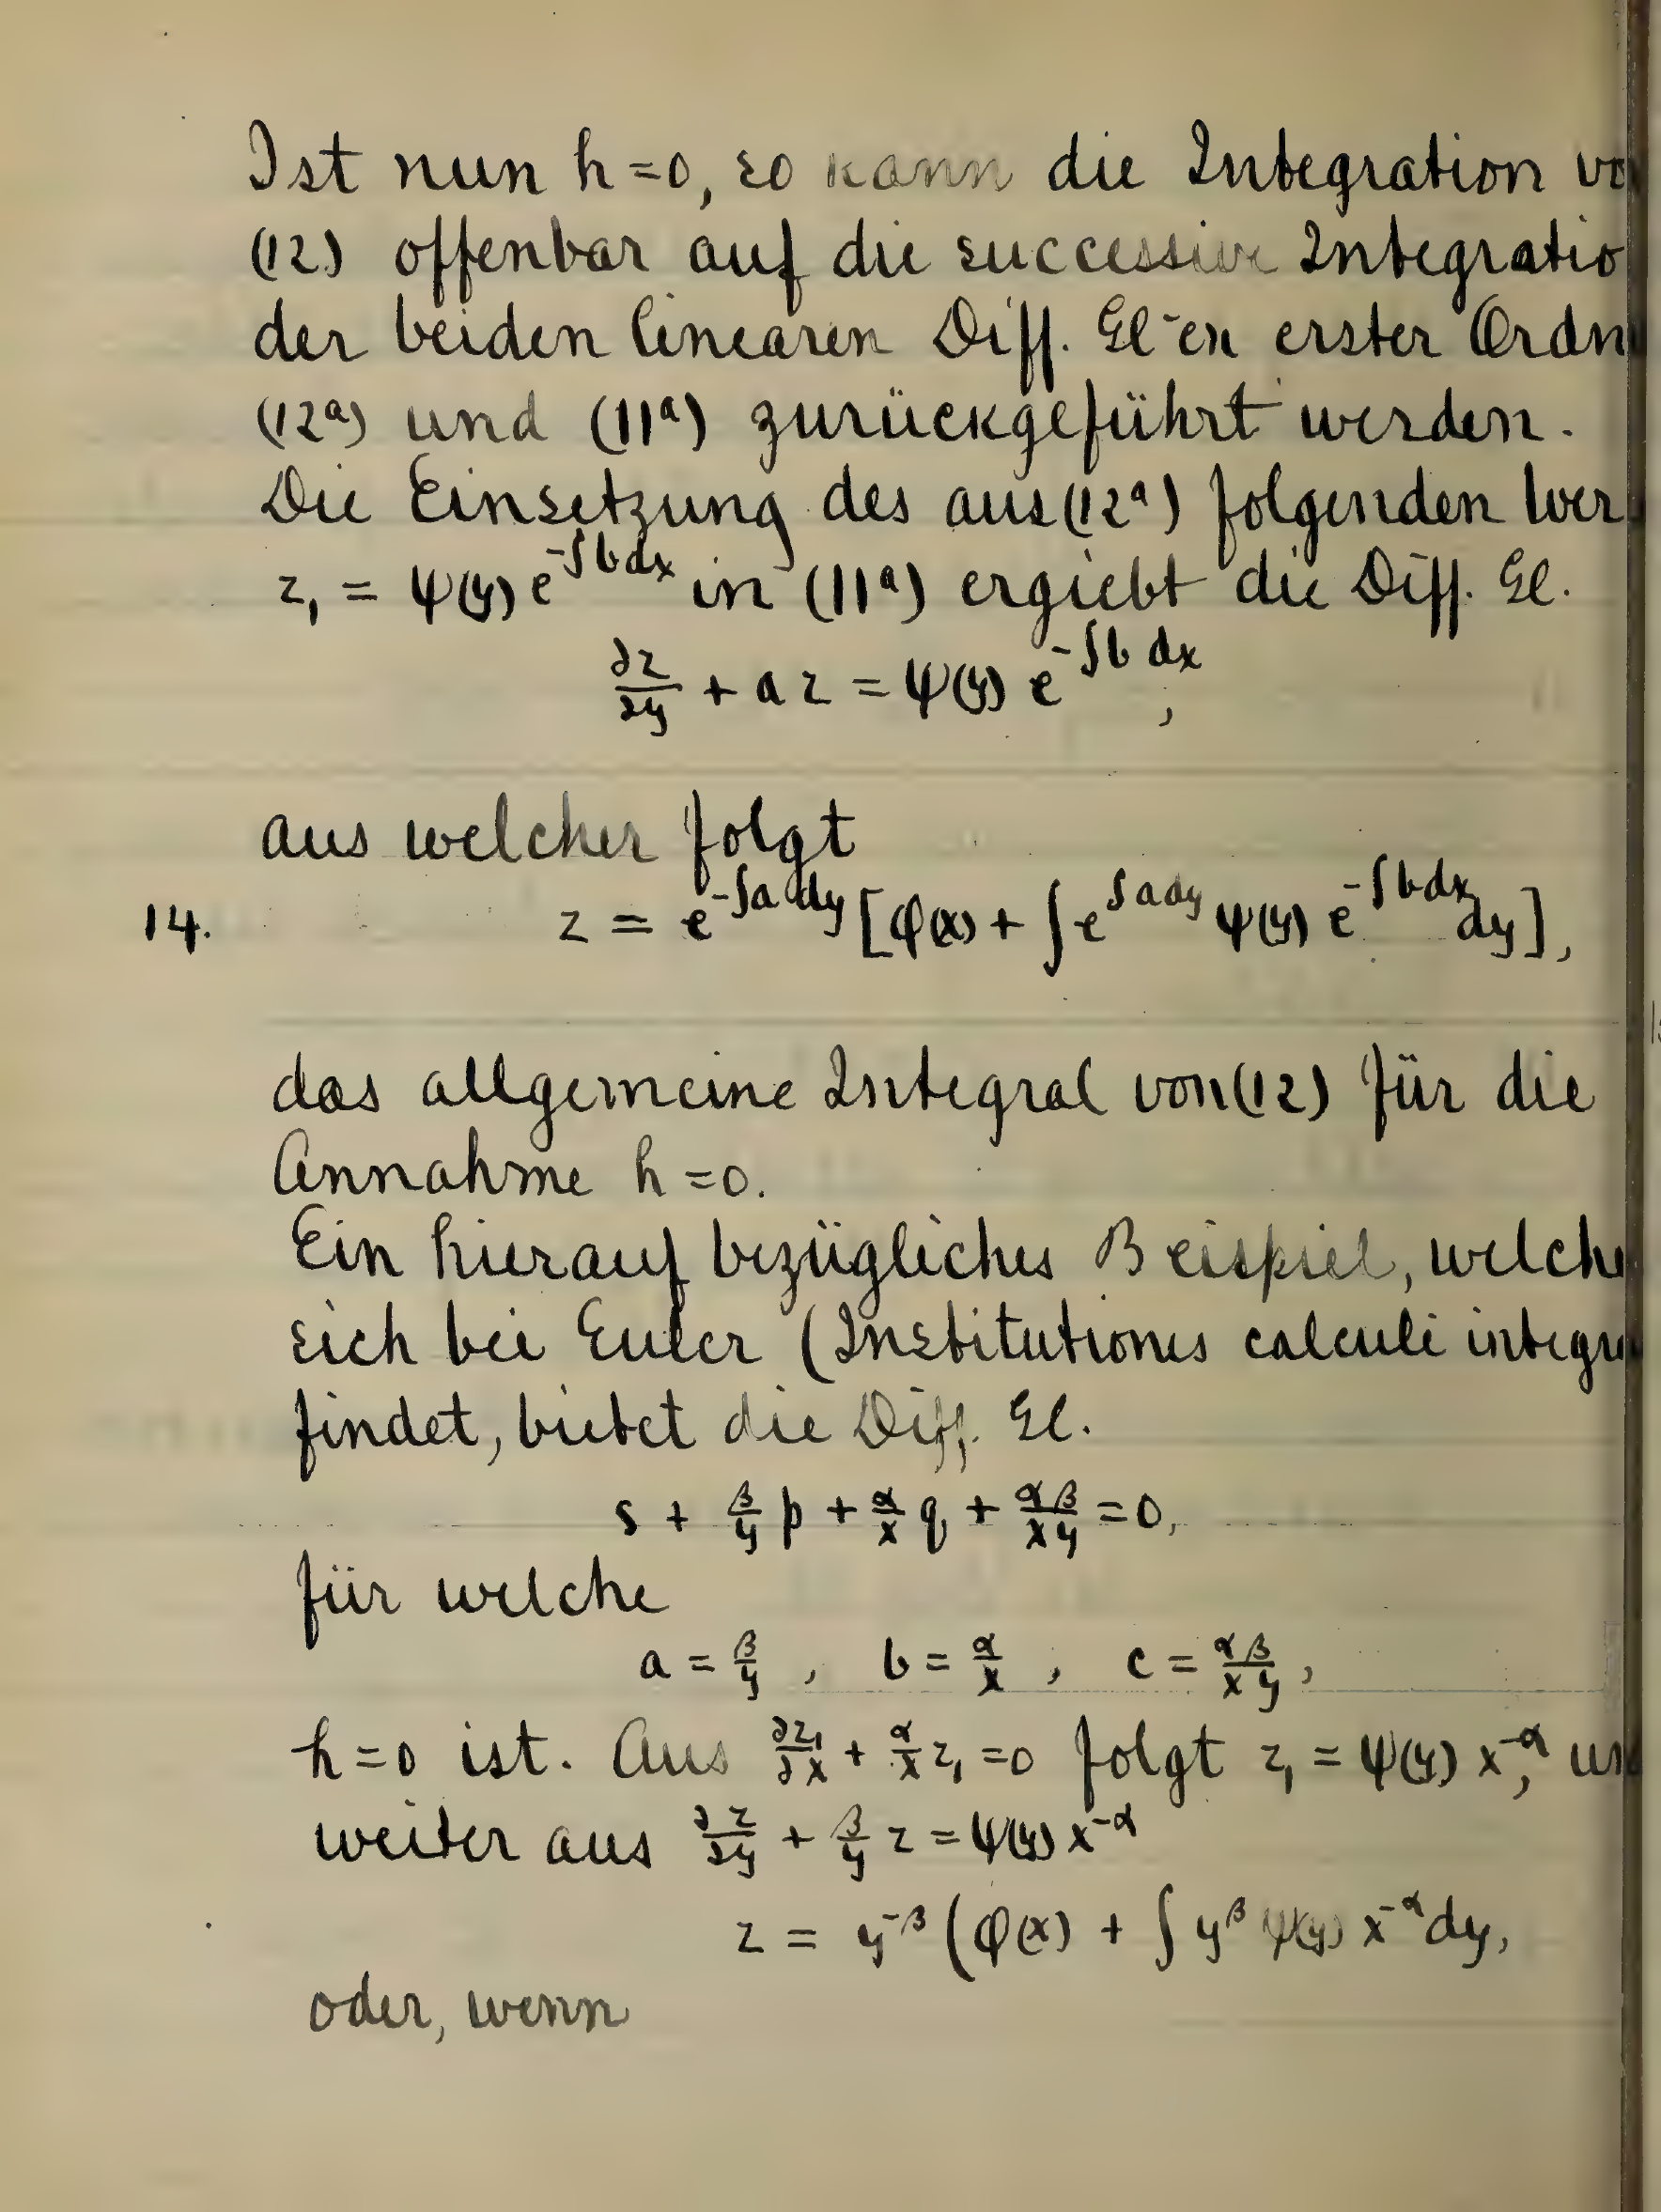 Ist nun h=0, so kann die Integration vo
(12) offenbar auf die successive Integratio
der beiden linearen Diff. Gl-en erster Ordn
(12ᵃ) und (11ᵃ) zurückgeführt werden.
Die Einsetzung des aus (12ᵃ) folgenden Wer
z₁ = ψ(y) e^{-∫b dx} in (11ᵃ) ergiebt die Diff. Gl.
∂z/∂y + az = ψ(y) e^{-∫b dx},
aus welcher folgt
14. z = e^{-∫a dy} [φ(x) + ∫e^{∫a dy} ψ(y) e^{-∫b dx} dy],
das allgemeine Integral von (12) für die
Annahme h=0.
Ein hierauf bezügliches Beispiel, welche
sich bei Euler (Institutiones calculi integra
findet, bietet die Diff. Gl.
s + β/y p + α/x q + αβ/xy = 0,
für welche
a = β/y, b = α/x, c = αβ/xy,
h=0 ist. Aus ∂z₁/∂x + α/x z₁ = 0 folgt z₁ = ψ(y) x^{-α}, un
weiter aus ∂z/∂y + β/y z = ψ(y) x^{-α}
z = y^{-β} (φ(x) + ∫ y^β ψ(y) x^{-α} dy,
oder, wenn